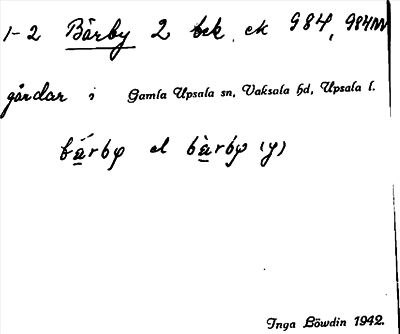 1-2 Bärby 2 bek. ek 984, 984m
gårdar i Gamla Upsala sn, Vaksala hd, Upsala l.
bä́rby el bàrby (y)
Inga Löwdin 1942.